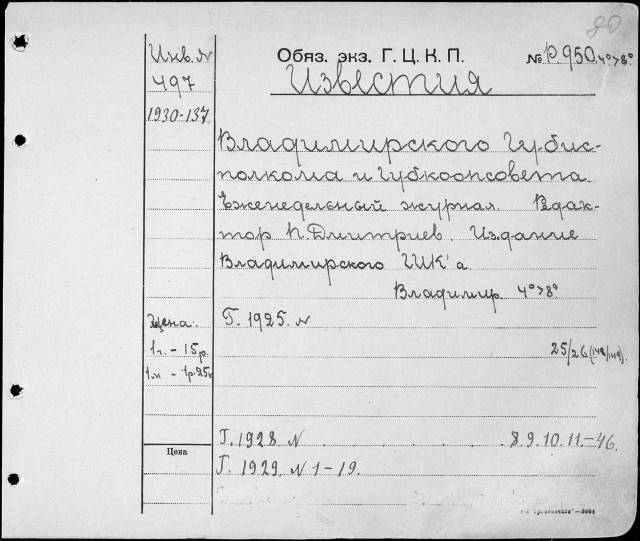 80
Инв. N
497
1930-137
Обяз. экз. Г. Ц. К. П.
№ Р.950. 4°>8°
Известия
Владимирского Губис-
полкома и Губкоопсовета.
Еженедельный журнал. Редак-
тор П. Дмитриев. Издание
Владимирского ГИК'а.
Владимир. 4°>8°
Цена:
1г. - 15р.
1м - 1р.25к
Г. 1925. N
25/26 (148/149).
Г. 1928. N . . . . . 8.9.10.11.-46.
Цена
Г. 1929. N 1-19.